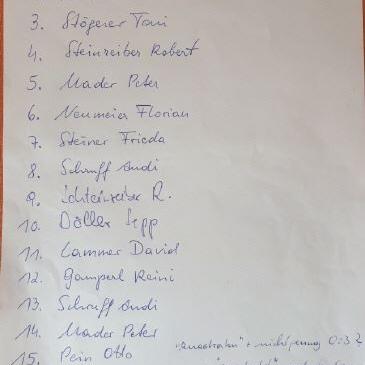 3. Stögerer Toni
4. Steinreiber Robert
5. Mader Peter
6. Neumeier Florian
7. Steiner Frieda
8. Schruff Andi
9. R.
10. Döller Sepp
11. Lammer David
12. Gamperl Reini
13. Schruff Andi
14. Mader Peter
15. Pein Otto
0:3 2